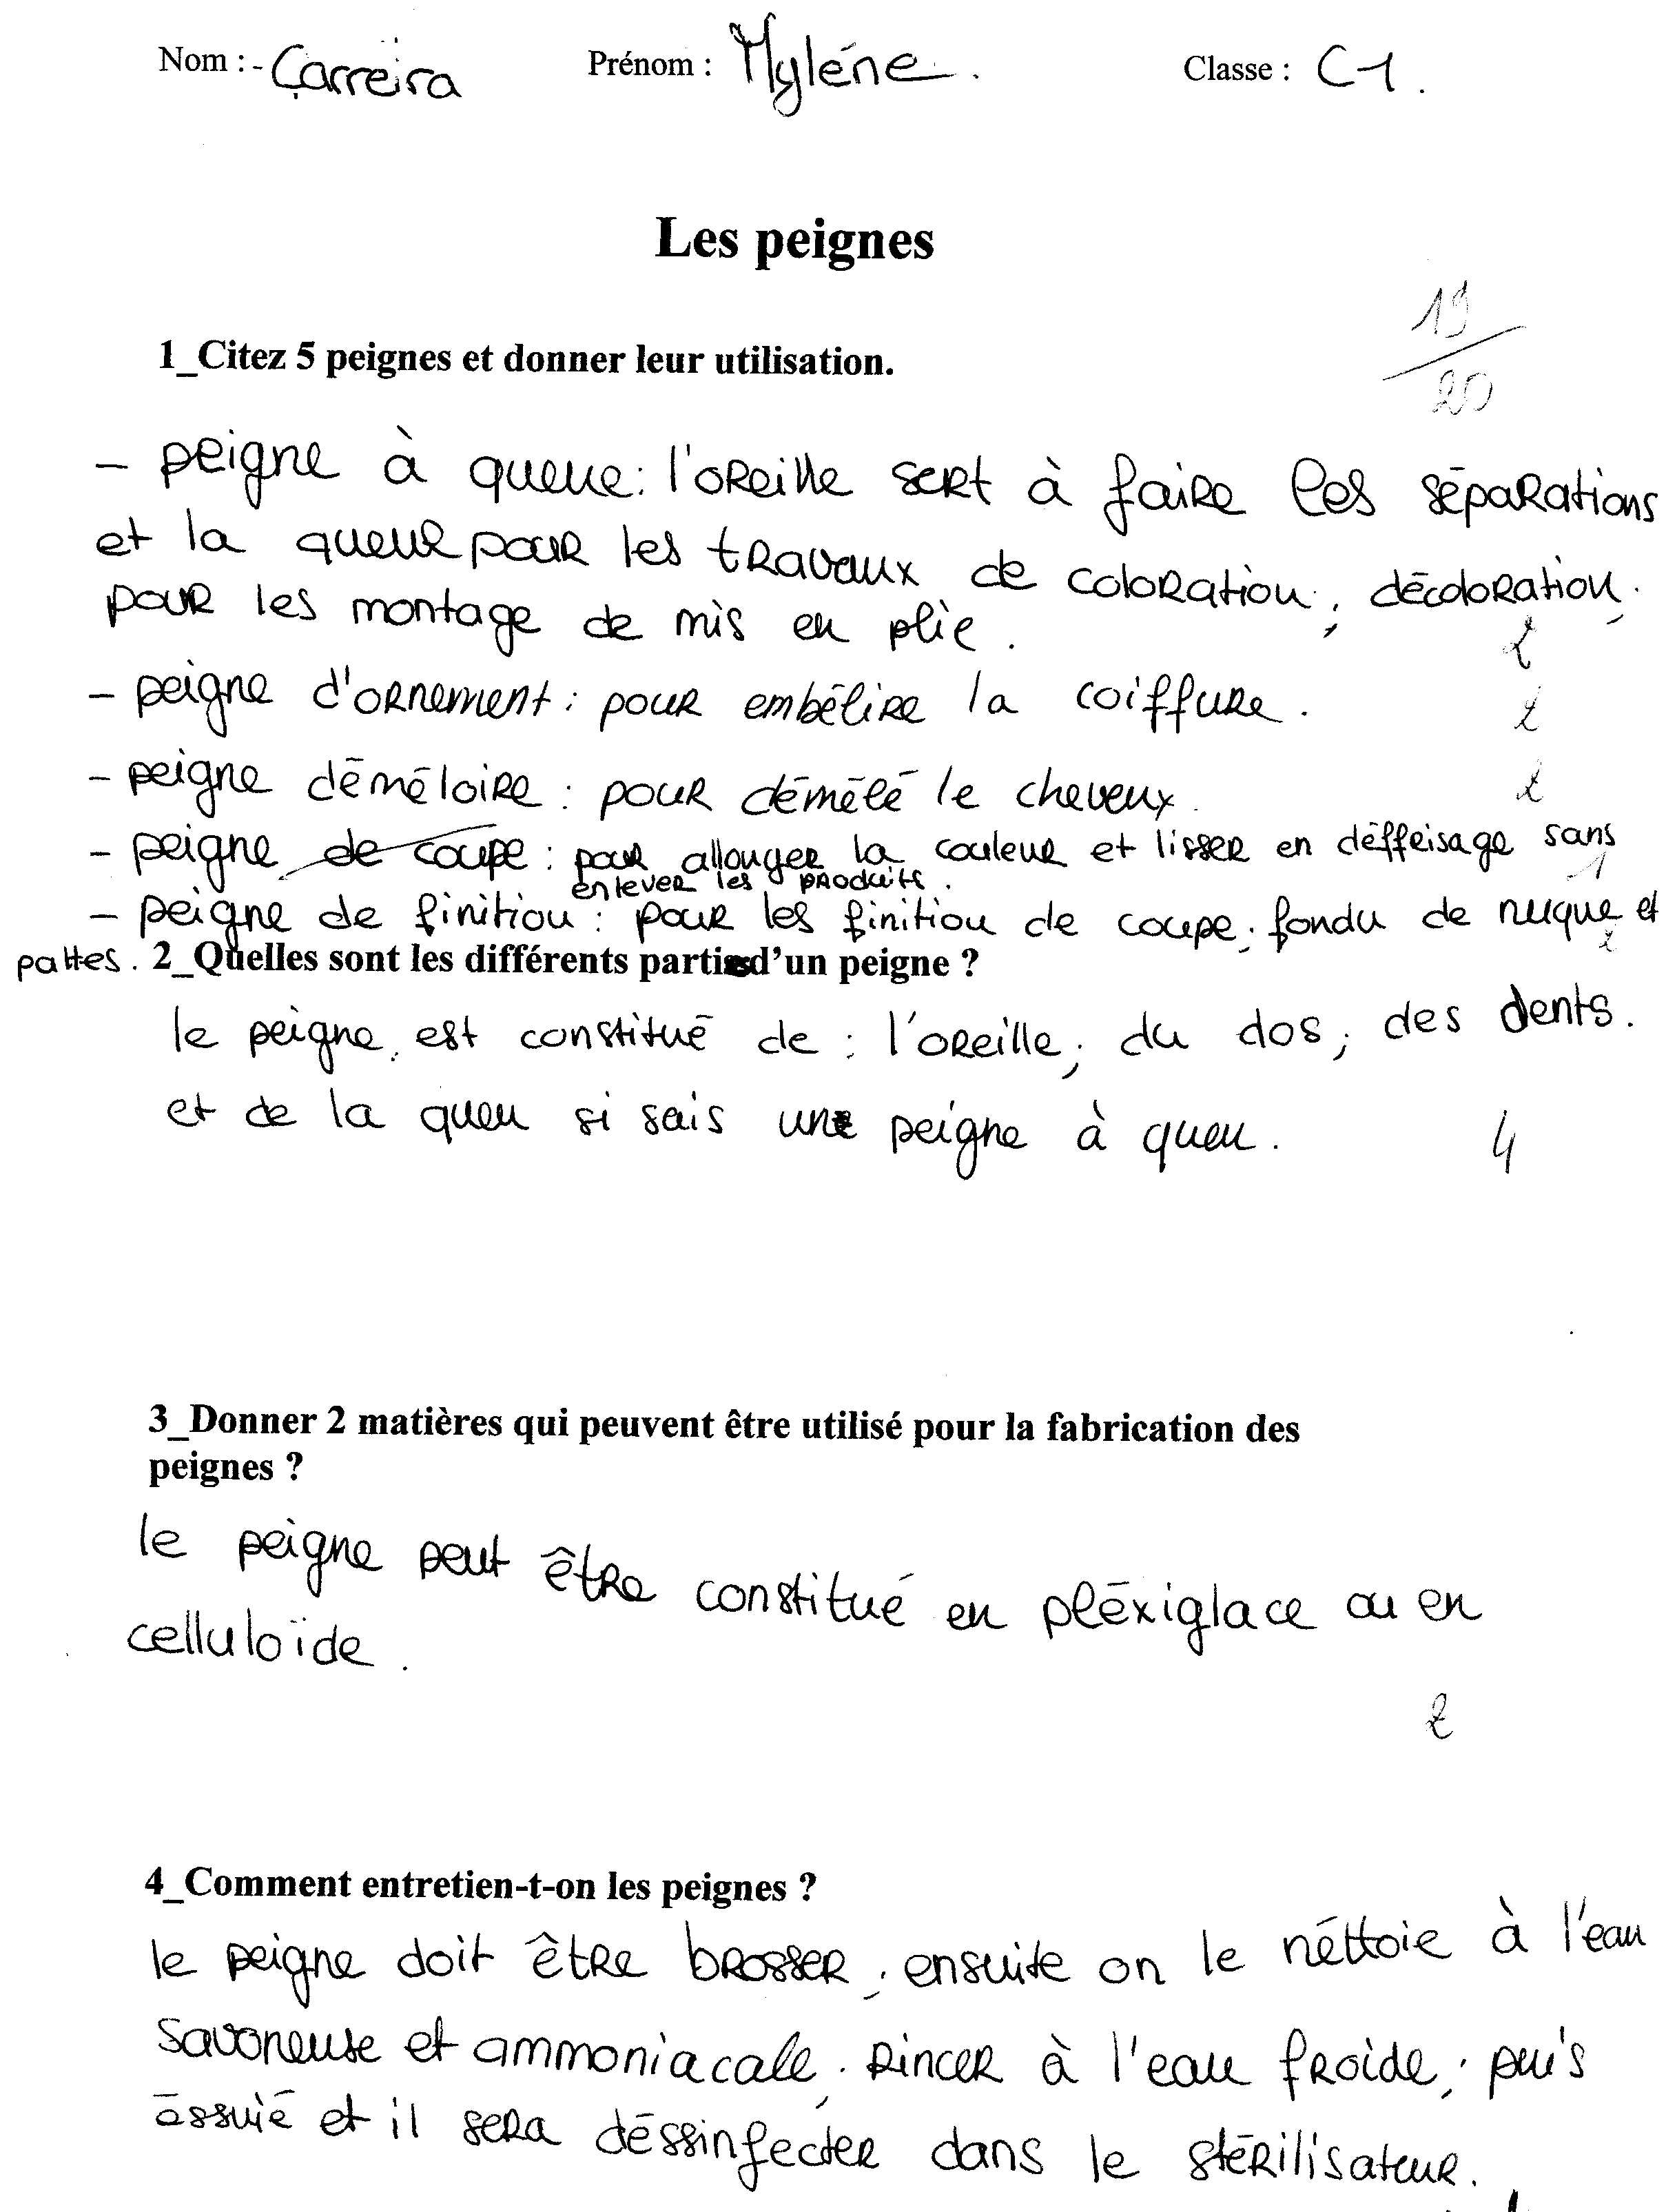 Nom : - Carreira Prénom : Myléne. Classe : C1.
Les peignes
19
20
1_Citez 5 peignes et donner leur utilisation.
- peigne à queue : l'oreille sert à faire les séparations
et la queue pour les travaux de coloration, décoloration,
pour les montage de mis en plie.
2
- peigne d'ornement : pour embélire la coiffure.
2
- peigne déméloire : pour démélé le cheveux.
2
- peigne de coupe : pour allonger la couleur et lisser en déffeisage sans
enlever les produits.
1
- peigne de finition : pour les finition de coupe, fondu de nuque et
pattes.
2
2_Quelles sont les différents parties d'un peigne ?
le peigne est constitué de : l'oreille, du dos, des dents.
et de la queu si sais une peigne à queu.
4
3_Donner 2 matières qui peuvent être utilisé pour la fabrication des
peignes ?
le peigne peut être constitué en pléxiglace ou en
celluloïde.
2
4_Comment entretien-t-on les peignes ?
le peigne doit être brosser, ensuite on le néttoie à l'eau
savoneuse et ammoniacale, rincer à l'eau froide, puis
éssuié et il sera déssinfecter dans le stérilisateur.